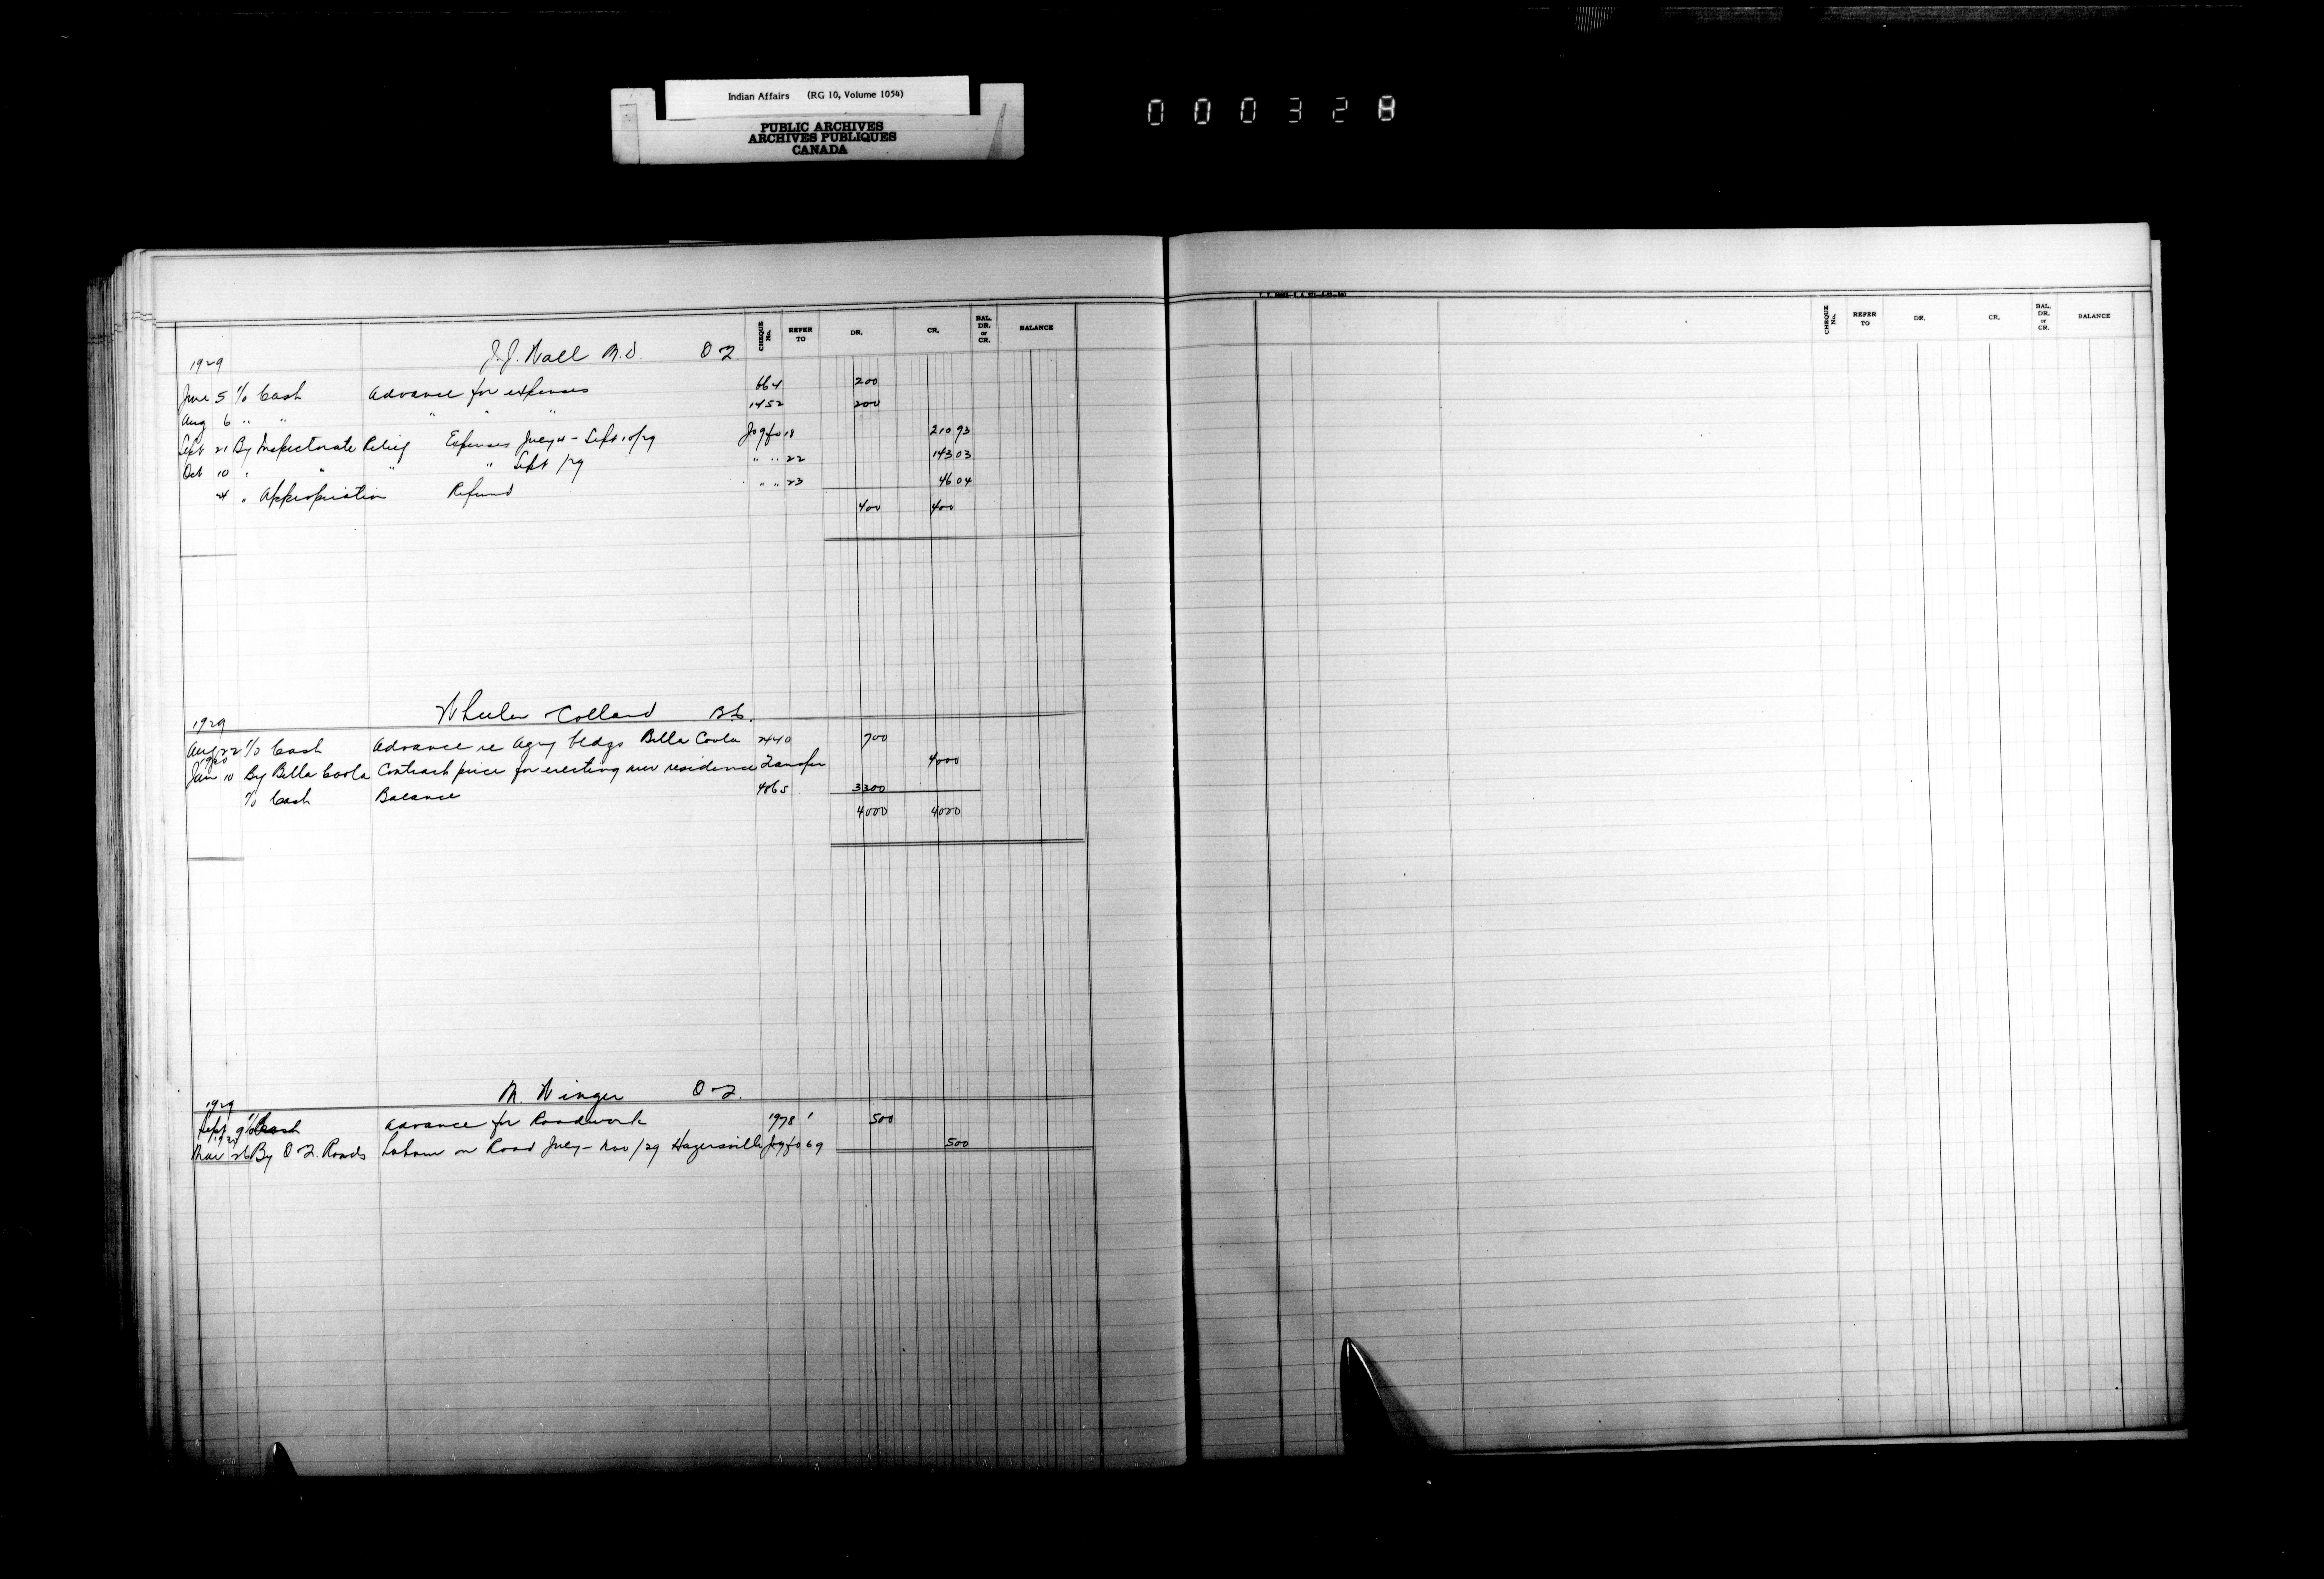 Indian Affairs (RG 10, Volume 1054)
PUBLIC ARCHIVES
ARCHIVES PUBLIQUES
CANADA
000328
CHEQUE No. REFER TO DR. CR. BAL. DR. or CR. BALANCE
1929 J.J. Wall M.D. O 2
June 5 To Cash Advance for expenses 664 200
Aug 6 " " " " " 1452 200
Sept 21 By Inspectorate Relief Expenses July 4 - Sept 10/29 Jo 9 fo 18 210 93
Oct 10 " " " " Sept /29 " " 22 143 03
24 " Appropriation Refund " " 23 46 04
400 400
1929 Wheeler Colland B.C.
Aug 22 To Cash Advance re Agcy bldgs Bella Coola 2440 700
1930
Jan 10 By Bella Coola Contract price for erecting new residence Transfer 4000
To Cash Balance 4865 3300
4000 4000
1929 M. Winger O 2.
Sept 9 To Cash Advance for Roadwork 1978 500
1930
Mar 26 By O 2. Roads Labour on Road July - Nov /29 Hagersville Jo 9 fo 69 500
CHEQUE No. REFER TO DR. CR. BAL. DR. or CR. BALANCE